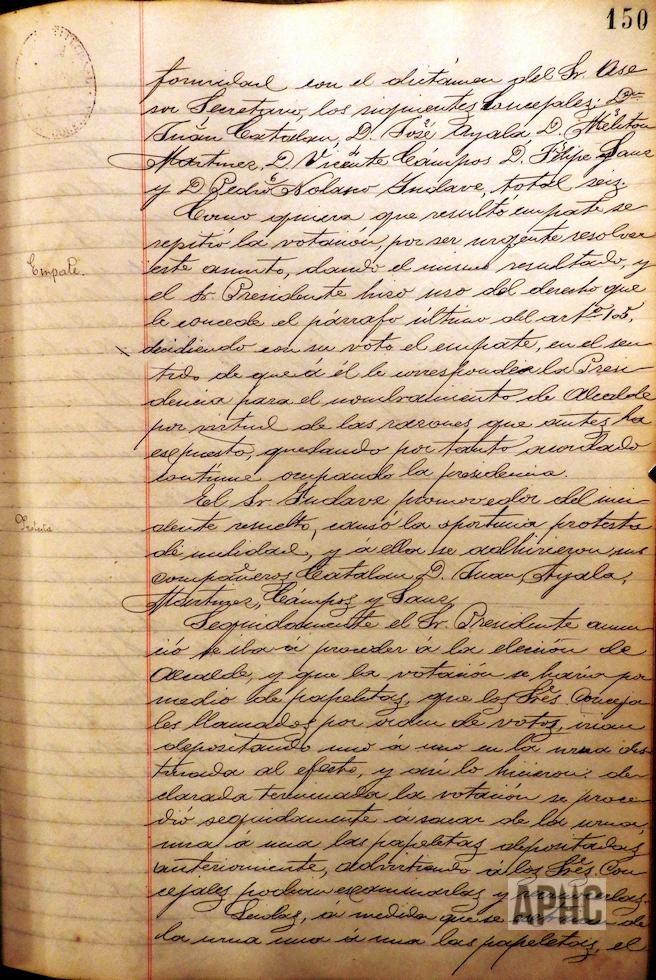 150
formidad con el dictámen del Sr. Ase
sor Secretario, los siguientes Concejales: Don
Juan Catalan, D. José Ayala D. Meliton
Martinez, D. Vicente Cámpos D. Felipe Sanz
y D. Pedro Nolasco Yndave, total seis.
Como quiera que resultó empate se
repitió la votacion, por ser urgente resolver
Empate.
este asunto, dando el mismo resultado, y
el Sr. Presidente hizo uso del derecho que
le concede el párrafo último del artº 105,
decidiendo con su voto el empate, en el sen
tido de que á él le corresponde la Presi-
dencia para el nombramiento de Alcalde
por virtud de las razones que antes ha
espuesto, quedando por tanto acordado
continúe ocupando la presidencia.
El Sr Yndave promovedor del inci-
Protesta
dente resuelto, causó la oportuna protesta
de nulidad, y á ella se adhirieron sus
compañeros Catalan D. Juan, Ayala,
Martinez, Cámpos y Sanz.
Seguidamente el Sr. Presidente anun
ció se iba á proceder á la eleccion de
Alcalde, y que la votación se haria por
medio de papeletas, que los Sres. Conceja
les llamados por orden de votos, irian
depositando uno á uno en la urna des
tinada al efecto, y asi lo hicieron: de
clarada terminada la votación se proce-
dió seguidamente á sacar de la urna,
una á una las papeletas depositadas
anteriormente, advirtiendo á los Sres Con
cejales podian escaminarlas y
á medida que se de
la urna una á una las papeletas, el
APHC